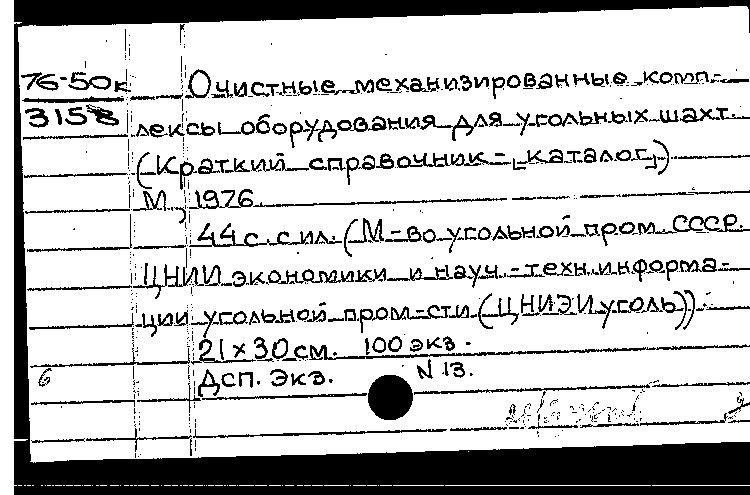 76-50к
3158
Очистные механизированные комп-
лексы оборудования для угольных шахт.
(Краткий справочник-[каталог])
М., 1976.
44 с. с ил. (М-во угольной пром. СССР.
ЦНИИ экономики и науч.-техн. информа-
ции угольной пром-сти (ЦНИЭИуголь)).
21х30 см. 100 экз.
6 Дсп. Экз. N 13.